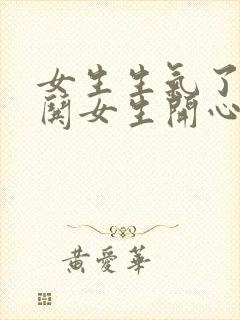 女生生氣了
鬨女生開心
黃愛華